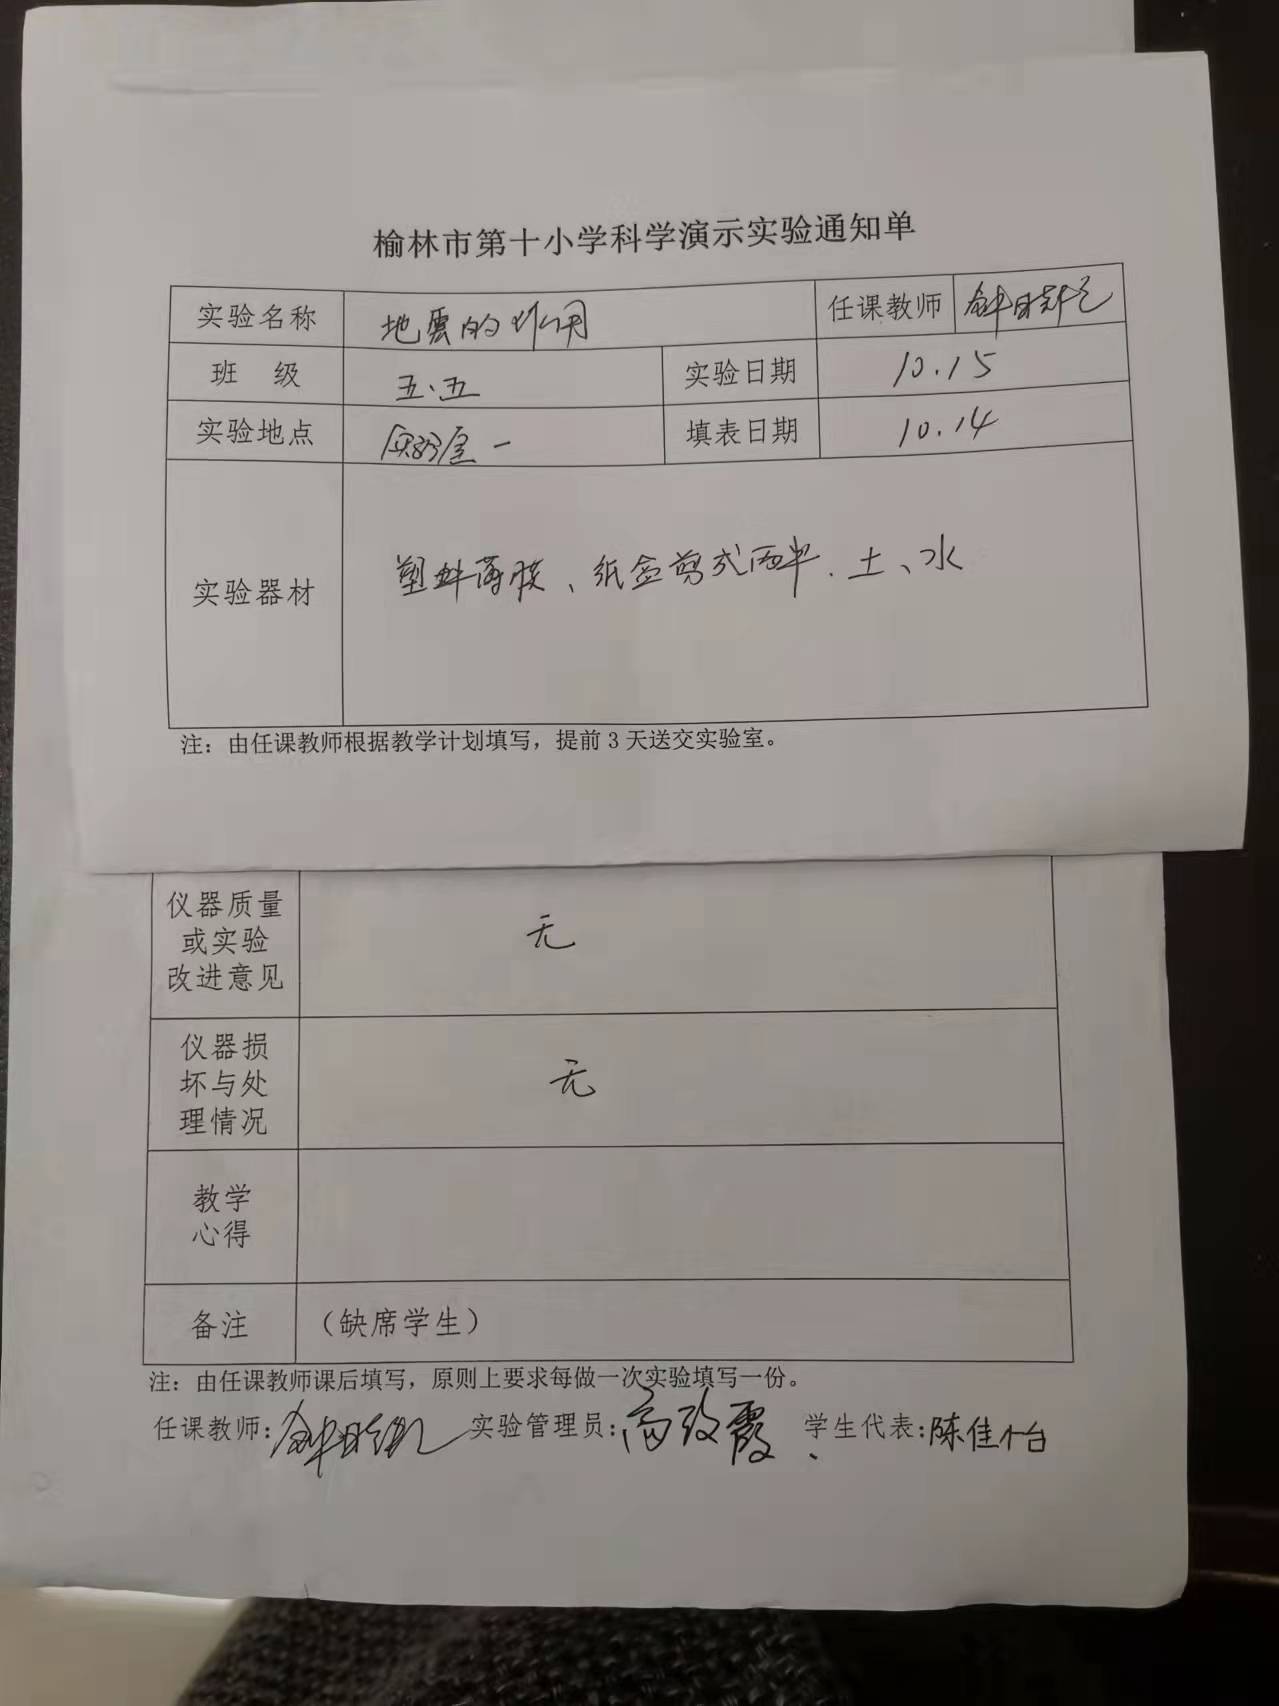 榆林市第十小学科学演示实验通知单
实验名称 地震的作用 任课教师
班 级 五.五 实验日期 10.15
实验地点 实验室一 填表日期 10.14
实验器材 塑料薄膜、纸盒剪成两半.土、水
注：由任课教师根据教学计划填写，提前3天送交实验室。
仪器质量
或实验
改进意见 无
仪器损
坏与处
理情况 无
教学
心得
备注 （缺席学生）
注：由任课教师课后填写，原则上要求每做一次实验填写一份。
任课教师: 实验管理员:高改霞、学生代表:陈佳怡